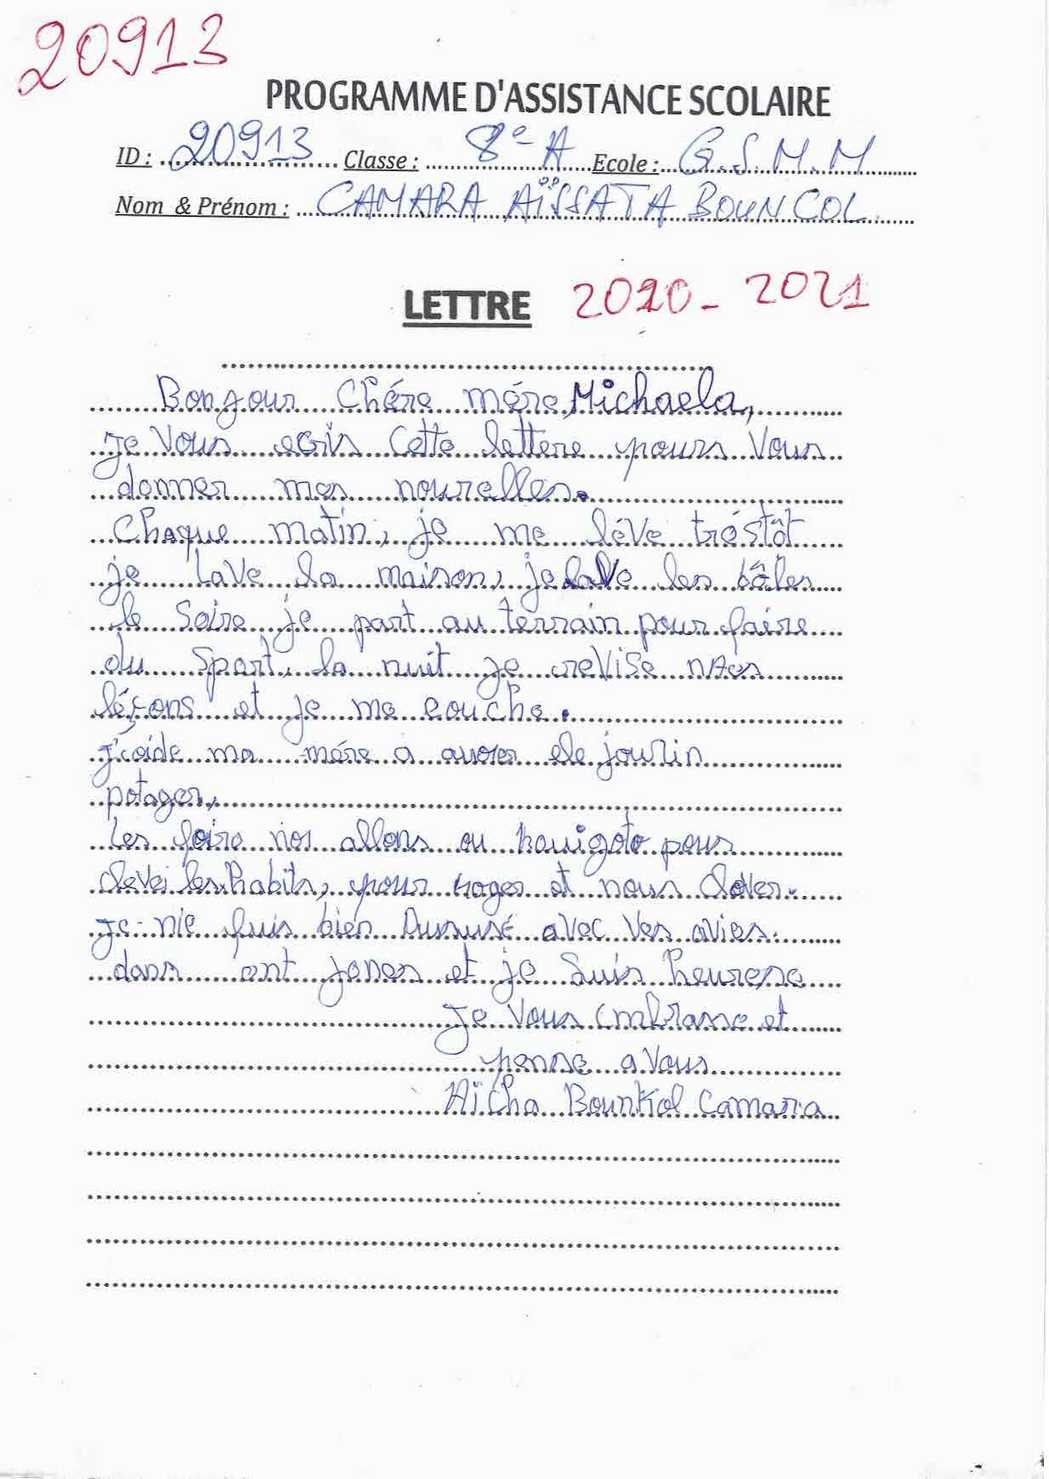 20913
PROGRAMME D'ASSISTANCE SCOLAIRE
ID : 20913 Classe : 8e A Ecole : G.S.M.M
Nom & Prénom : CAMARA AÏSSATA BOUNCOL
LETTRE 2020-2021
Bonjour Chére mére, Michaela,
je vous ecris cette lettere pours vous
donner mes nouvelles.
Chaque matin, je me léve tréstôt
je lave la maison, je lave les bâles
le Soire je part au terrain pour faire
du Sport, la nuit je revise mes
léçons et je me couche.
J'çaide ma mére a auroser le jourin
potager,
les foire nos allons au pour
lever les habits, pour nager et nous laver.
je suis bien avec ves avies.
dans ent janen et je Suis heurese
Je vous embrasse et
pense a vous
Aïcha Bounkol Camara